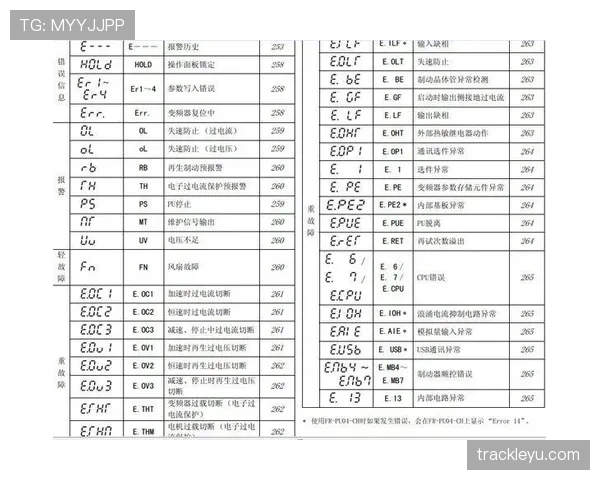 TG: MYYJJPP
错误信息
E--- E---- 报警历史 253
HOLd HOLD 操作面板锁定 258
Er1~Er4 Er1~4 参数写入错误 258
Err. Err. 变频器复位中 258
报警
OL OL 失速防止（过电流） 259
oL oL 失速防止（过电压） 259
rb RB 再生制动预报警 260
TH TH 电子过电流保护预报警 260
PS PS PU停止 259
MT MT 维护信号输出 260
Uv UV 电压不足 260
轻故障
Fn FN 风扇故障 260
重故障
E.OC1 E.OC1 加速时过电流切断 261
E.OC2 E.OC2 恒速时过电流切断 261
E.OC3 E.OC3 减速、停止中过电流切断 261
E.Ov1 E.OV1 加速时再生过电压切断 261
E.Ov2 E.OV2 恒速时再生过电压切断 262
E.Ov3 E.OV3 减速、停止时再生过电压切断 262
E.THT E.THT 变频器过载切断（电子过电流保护） 262
E.THM E.THM 电机过载切断（电子过 262
重故障
E.ILF E.ILF* 输入缺相 263
E.OLT E.OLT 失速防止 263
E. bE E. BE 制动晶体管异常检测 263
E. GF E.GF 启动时输出侧接地过电流 263
E. LF E.LF 输出缺相 263
E.OHT E.OHT 外部热敏继电器动作 263
E.OP1 E.OP1 通讯选件异常 264
E. 1 E. 1 选件异常 264
E. PE E.PE 变频器参数存储元件异常 264
E.PE2 E.PE2* 内部基板异常 264
E.PUE E.PUE PU脱离 264
E.rET E.RET 再试次数溢出 264
E. 6/ E. 7/ E.CPU E. 6/ E. 7/ E.CPU CPU错误 265
E.IOH E.IOH* 浪涌电流抑制电路异常 265
E.AIE E.AIE* 模拟量输入异常 265
E.USb E. USB* USB通讯异常 265
E.Mb4~E.Mb7 E.MB4~E.MB7 制动器顺控错误 265
E. 13 E.13 内部电路异常 265
* 使用FR-PU04-CH时如果发生错误，会在FR-PU04-CH上显示“Error 14”。
trackleyu.com